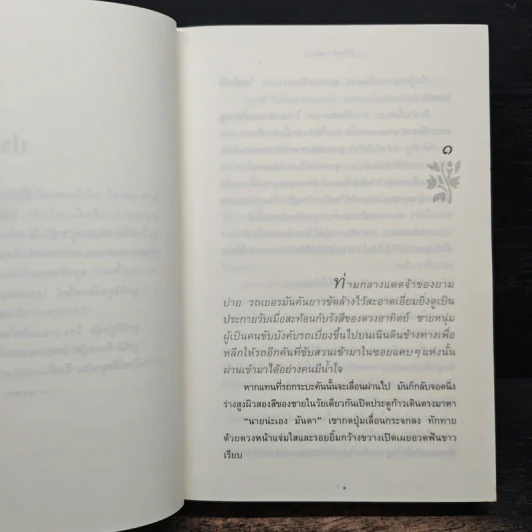 ๑
ท่ามกลางแดดจ้าของยาม
บ่าย รถเยอรมันคันยาวขัดล้างไว้สะอาดเอี่ยมยิ่งดูเป็น
ประกายวับเมื่อสะท้อนกับรังสีของดวงอาทิตย์ ชายหนุ่ม
ผู้เป็นคนขับบังคับรถเบี่ยงขึ้นไปบนเนินดินข้างทางเพื่อ
หลีกให้รถอีกคันที่ขับสวนเข้ามาในซอยแคบๆ แห่งนั้น
ผ่านเข้ามาได้อย่างคนมีน้ำใจ
หากแทนที่รถกระบะคันนั้นจะเลื่อนผ่านไป มันก็กลับจอดนิ่ง
ร่างสูงผิวสองสีของชายในวัยเดียวกันเปิดประตูก้าวเดินตรงมาหา
"นายน่ะเอง มันตา" เขากดปุ่มเลื่อนกระจกลง ทักทาย
ด้วยดวงหน้าแจ่มใสและรอยยิ้มกว้างขวางเปิดเผยอวดฟันขาว
เรียบ